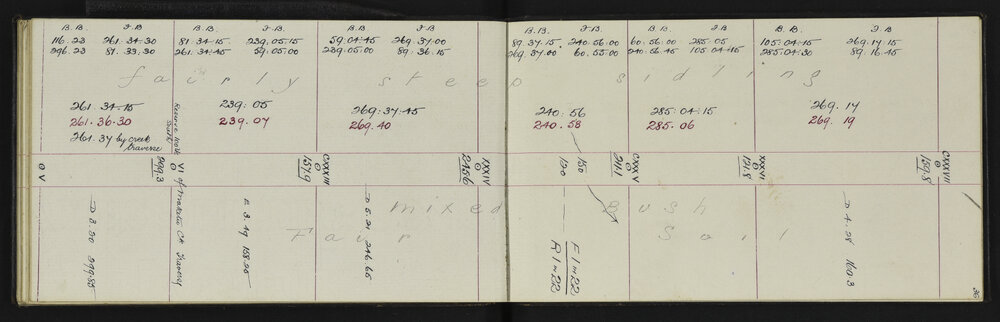 B.B. F.B
116.23 261.34.30
296.23 81.33.30
B.B. F.B.
81.34.15 239.05.15
261.34.45 59.05.00
B.B. F.B
59.04.45 269.37.00
239.05.00 89.36.15
B.B. F.B.
89.37.15 240.56.00
269.37.00 60.55.00
B.B. F.B
60.56.00 285.05
240.56.45 105.04.15
B.B. F.B
105.04.15 269.17.15
285.04.30 89.16.45
fairly steep sidling
261.34.15
261.36.30
261.37 by creek traverse
239.05
239.07
269.37.45
269.40
240.56
240.58
285.04.15
285.06
269.17
269.19
0 V
VI of Makatu Ck Traverse
299.3
CXXXIII
157.9
XXXIV
245.6
150
120
CXXXV
211.1
XXXVI
121.8
CXXXVII
159.8
mixed Bush
Fair Soil
D 3.20 299.85
E 3.49 158.25
D 5.21 246.65
F 1 in 22
R 1 in 22
D 4.28 160.3
36